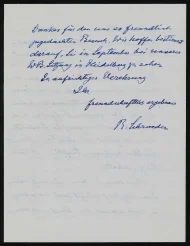 Dank für den uns so freundlich
zugedachten Besuch. Wir hoffen bestimmt
darauf, Sie im September bei unserer
Sitzung in Heidelberg zu sehen
In aufrichtiger Verehrung
Ihr
freundschaftlich ergebener
R. Schroeder